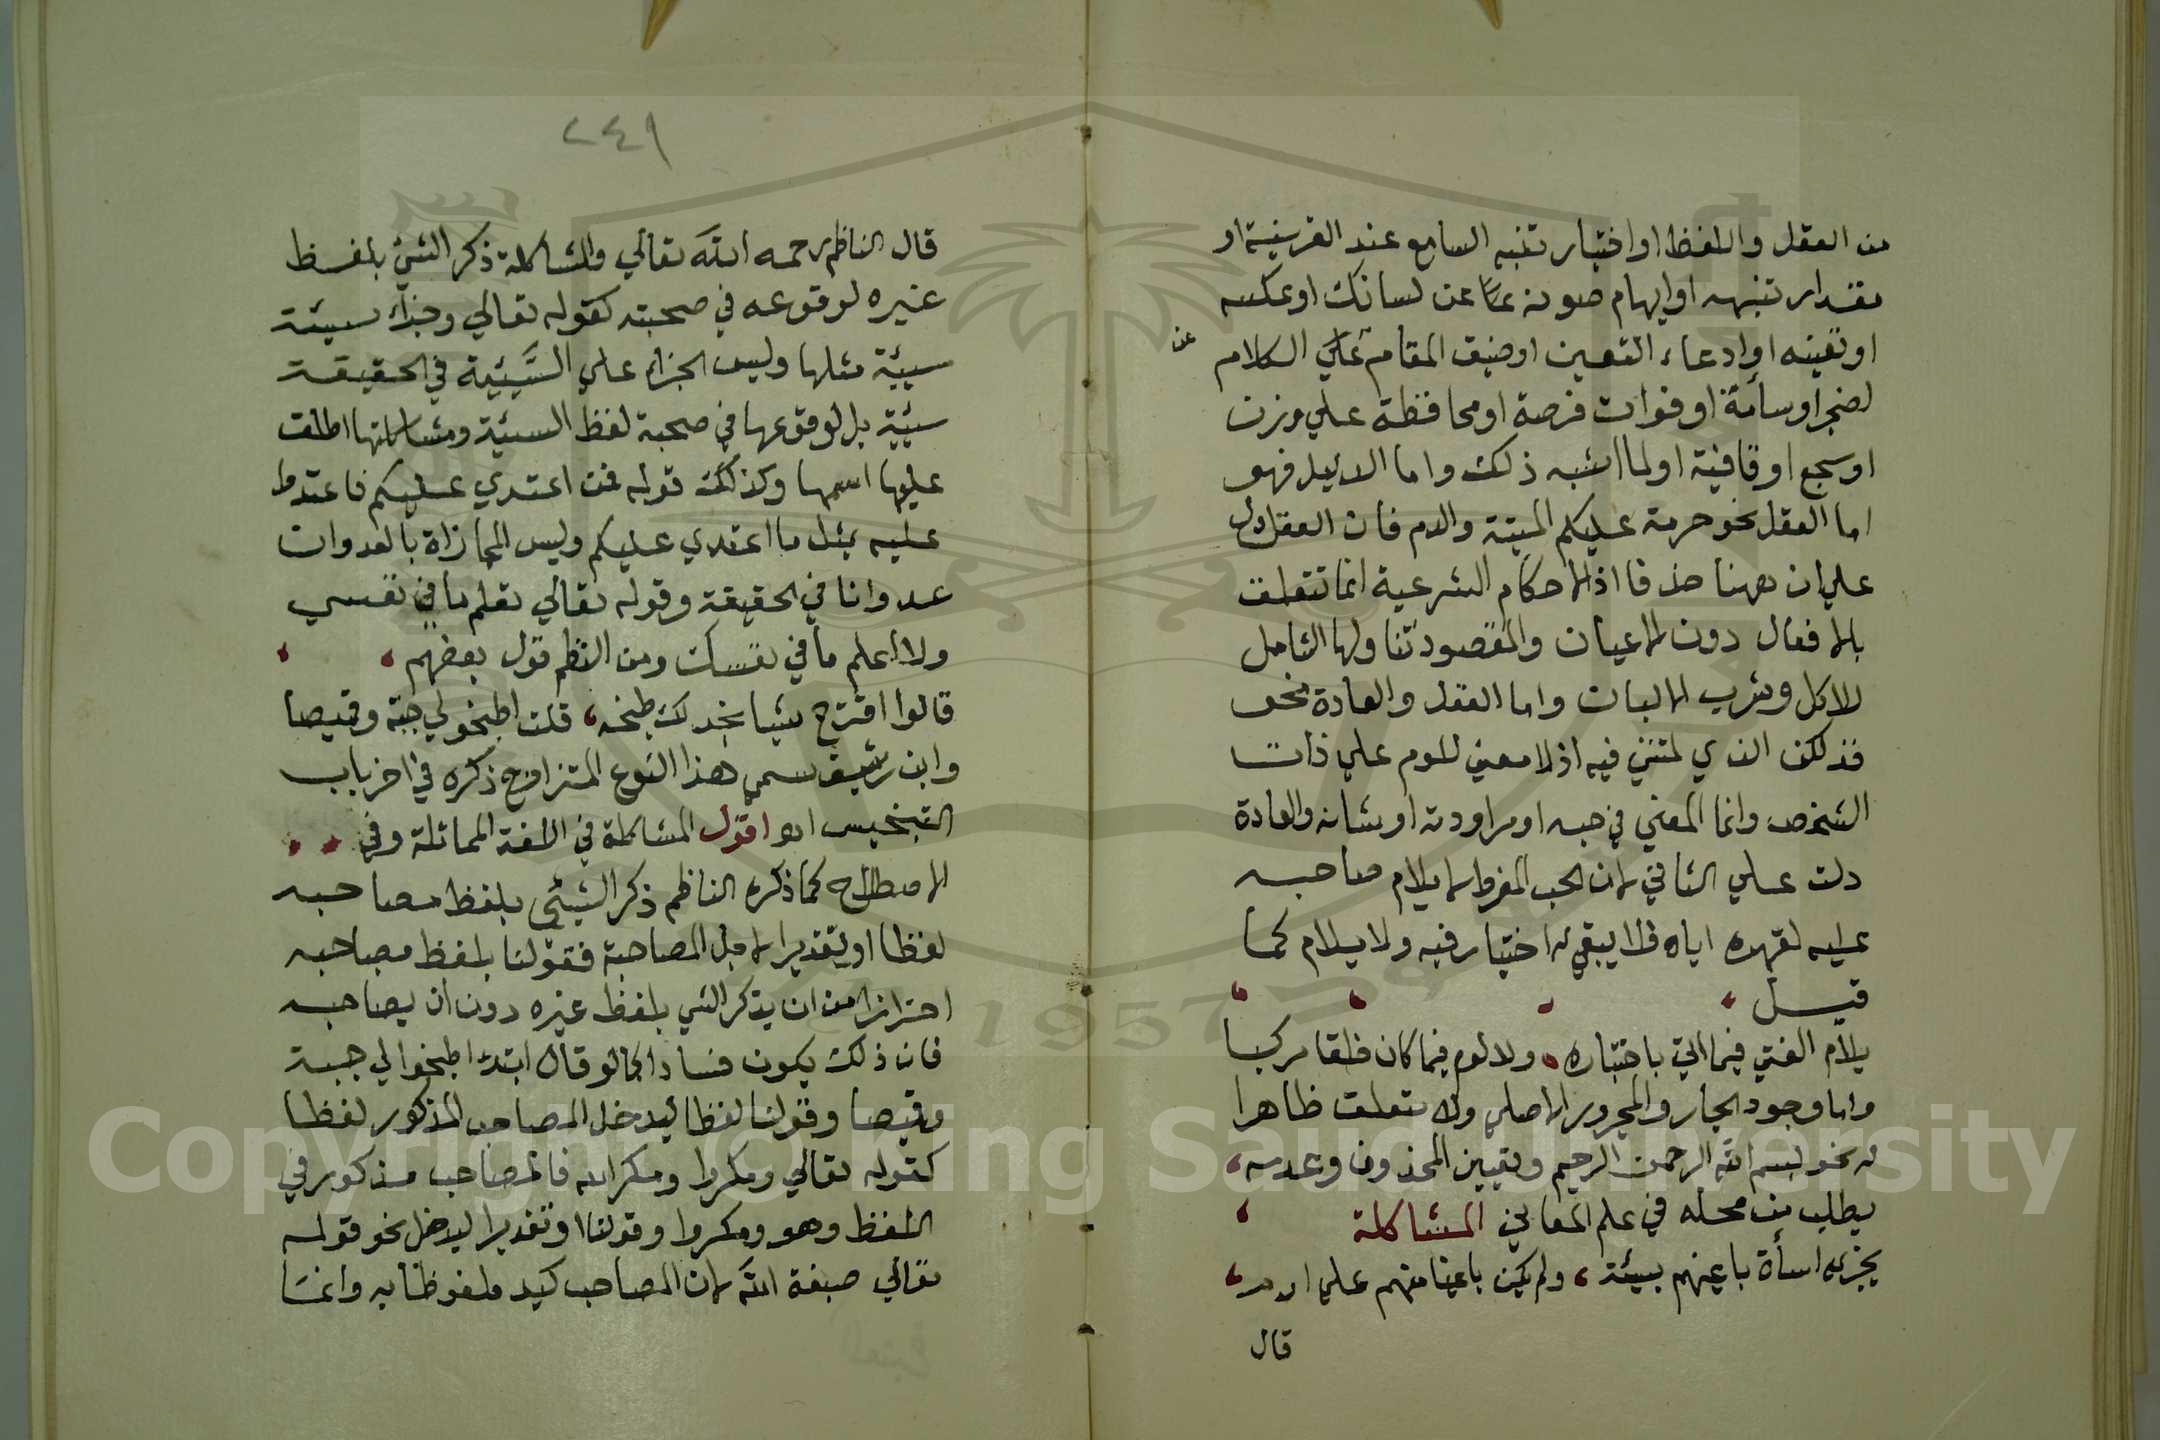 من العقل واللفظ او اختبار تنبه السامع عند القرينة او
مقدار تنبهه او ايهام صونه عن لسانك او عكسه
او تعينه او ادعاء التعين او ضيق المقام علي الكلام
عن
لضجر او سأمة او فوات فرصة او محافظة علي وزن
او سجع او قافية او لما اشبه ذلك واما الدليل فهو
اما العقل نحو حرمة عليكم الميتة والدم فان العقل دل
علي ان ههنا حذفا اذ الاحكام الشرعية انما تتعلق
بالافعال دون الاعيان والمقصود تناولها الشامل
للاكل وشرب الالبان واما العقل والعادة نحو
فذلكن الذي لمتنني فيه اذ لا معني للوم علي ذات
الشخص وانما المعني في حبه او مراودته او شانه والعادة
دلت علي الثاني لان الحب المفرط لا يلام صاحبه
عليه لقهره اياه فلا يبقي له اختيار فيه ولا يلام كما
قيل
يلام الفتي فيما اتي باختياره ، ولا لوم فيما كان خلقا مركبا
واما وجود الجار والمجرور الاصلي ولا متعلق ظاهرا
له نحو بسم الله الرحمن الرحيم وتعيين المحذوف وعدمه ،
يطلب من محله في علم المعاني المشاكلة
يجزي اساة باغيهم بسيئة ، ولم يكن باغيا منهم علي
قال
٢٤١
قال الناظم رحمه الله تعالي والمشاكلة ذكر الشئ بلفظ
غيره لوقوعه في صحبته كقوله تعالي وجزاء سيئة
سيئة مثلها وليس الجزاء علي السيئة في الحقيقة
سيئة بل لوقوعها في صحبة لفظ السيئة ومشاكلتها اطلق
عليها اسمها وكذلك قوله فمن اعتدي عليكم فاعتدوا
عليه بمثل ما اعتدي عليكم وليس المجازاة بالعدوان
عدوانا في الحقيقة وقوله تعالي تعلم ما في نفسي
ولا اعلم ما في نفسك ومن النظم قول بعضهم ،
قالوا اقترح شيا نجد لك طبخه ، قلت اطبخو لي جبة وقميصا
وابن رشيق سمي هذا النوع المتزاوج ذكره في اخر باب
التجنيس اهـ اقول المشاكلة في اللغة المماثلة وفي
الاصطلاح كما ذكره الناظم ذكر الشيئ بلفظ مصاحبه
لفظا او تقديرا لاجل المصاحبة فقولنا بلفظ مصاحبه
احترازا من ان يذكر الشي بلفظ غيره دون ان يصاحبه
فان ذلك يكون فسادا كما لو قال ابتداء اطبخوا لي جبة
وقميصا وقولنا لفظا ليدخل المصاحب المذكور لفظا
كقوله تعالي ومكروا ومكر الله فالمصاحب مذكور في
اللفظ وهو ومكروا وقولنا او تقديرا ليدخل نحو قوله
تعالي صبغة الله لان المصاحب ملفوظا به وانما
Copyright © King Saud University
1957